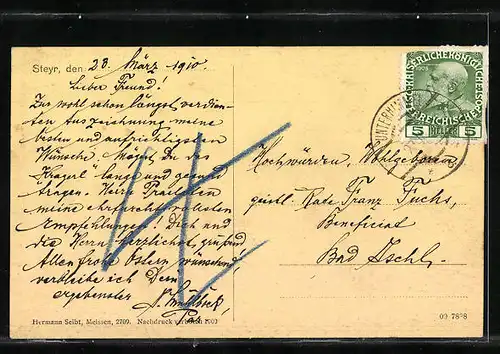 Steyr, den 28. März 1910.
Lieber Freund!
Zur wohl schon längst verdien-
ten Auszeichnung meine
besten und aufrichtigsten
Wünsche. Mögest Du das
"Kragerl" lang und gesund
tragen. Herrn
meine ehrfurchtsvollsten
Empfehlungen! Dich und
die Herrn herzlichst grüßend
Allen frohe Ostern wünschend,
verbleibe ich Dein
ergebenster
Hochwürden, Wohlgeboren
geistl. Rate Franz Fuchs,
Beneficiat
Bad Ischl.
KAISERLICHE KÖNIGLICHE
ÖSTERREICHISCHE POST
5 HELLER 5
Hermann Seibt, Meissen, 2709. Nachdruck verboten
09 7898